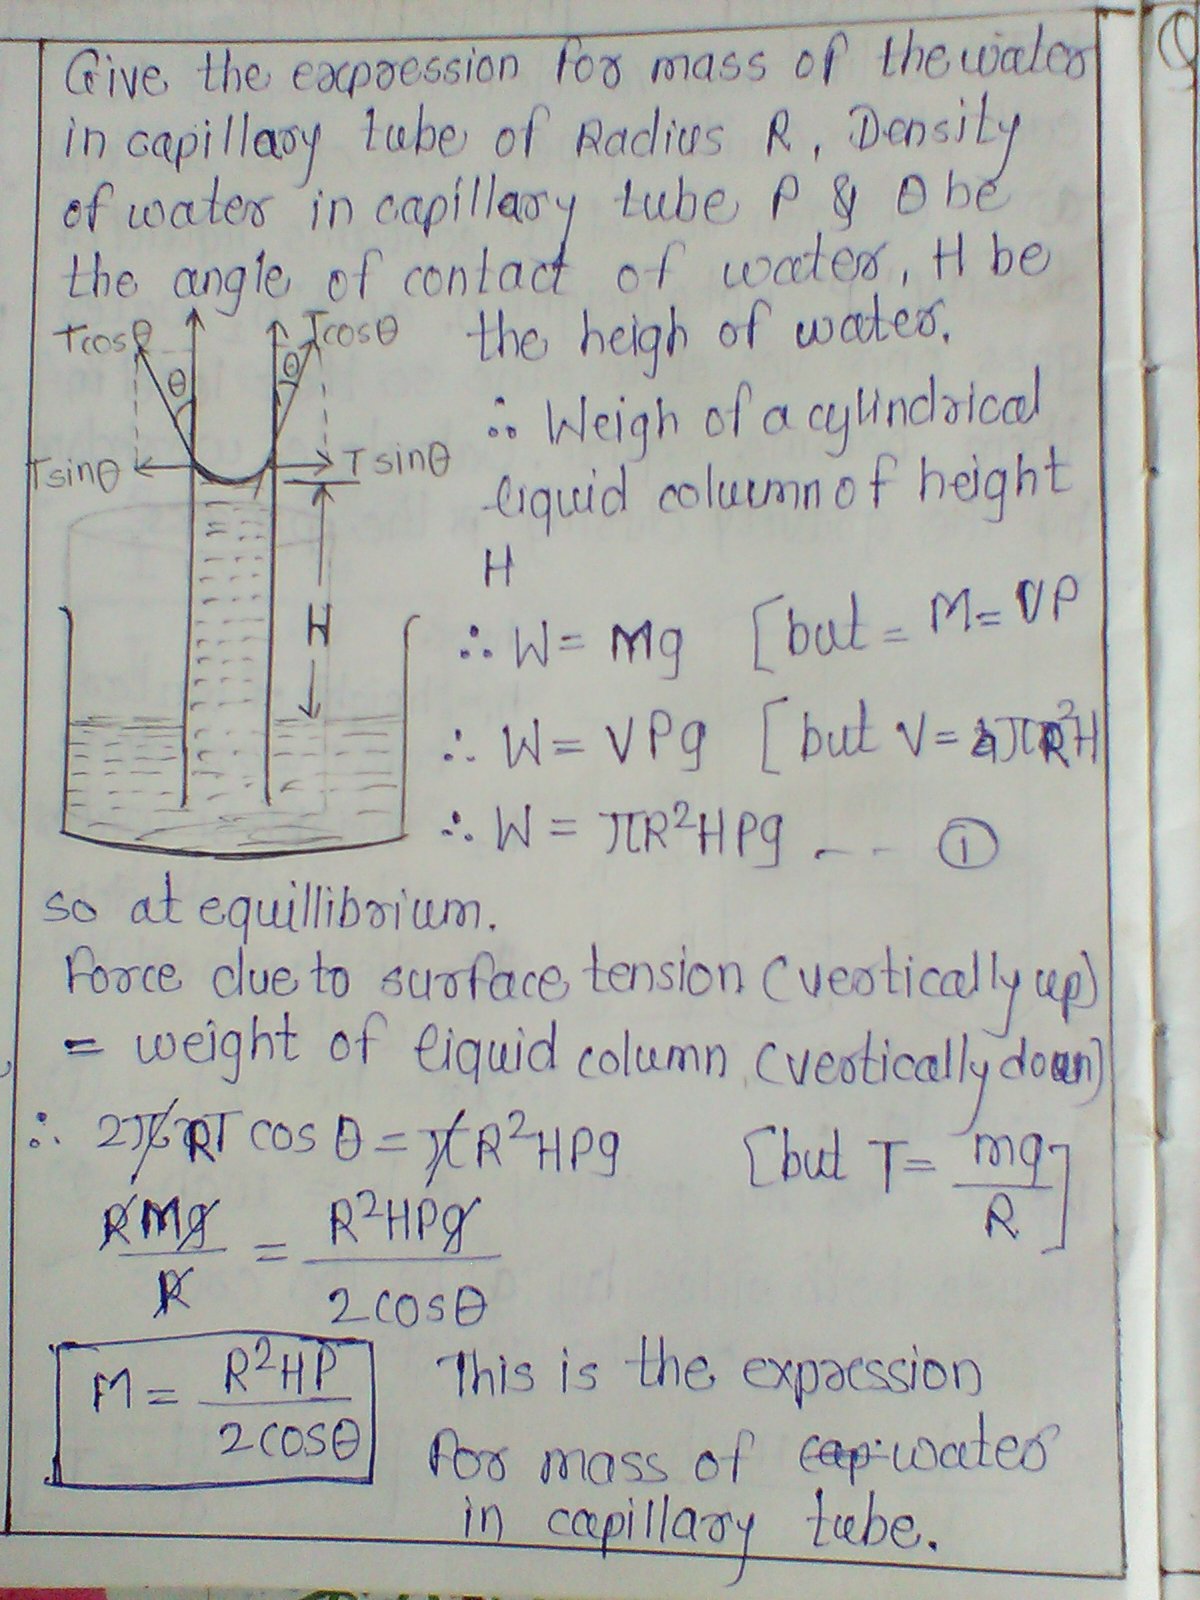 Give the expression for mass of the water
in capillary tube of Radius R, Density
of water in capillary tube P & θ be
the angle of contact of water, H be
the heigh of water.
Tcosθ
Tcosθ
θ
θ
Tsinθ
Tsinθ
H
∴ Weigh of a cylindrical
liquid column of height
H
∴ W = Mg [but = M = VP
∴ W = VPg [but V = πR²H
∴ W = πR²HPg --- ①
so at equillibrium.
Force due to surface tension (vertically up)
= weight of liquid column (vertically down)
∴ 2πRT cos θ = πR²HPg [but T = mg/R]
RMg/R = R²HPg/2cosθ
M = R²HP/2cosθ
This is the expression
for mass of cap. water
in capillary tube.